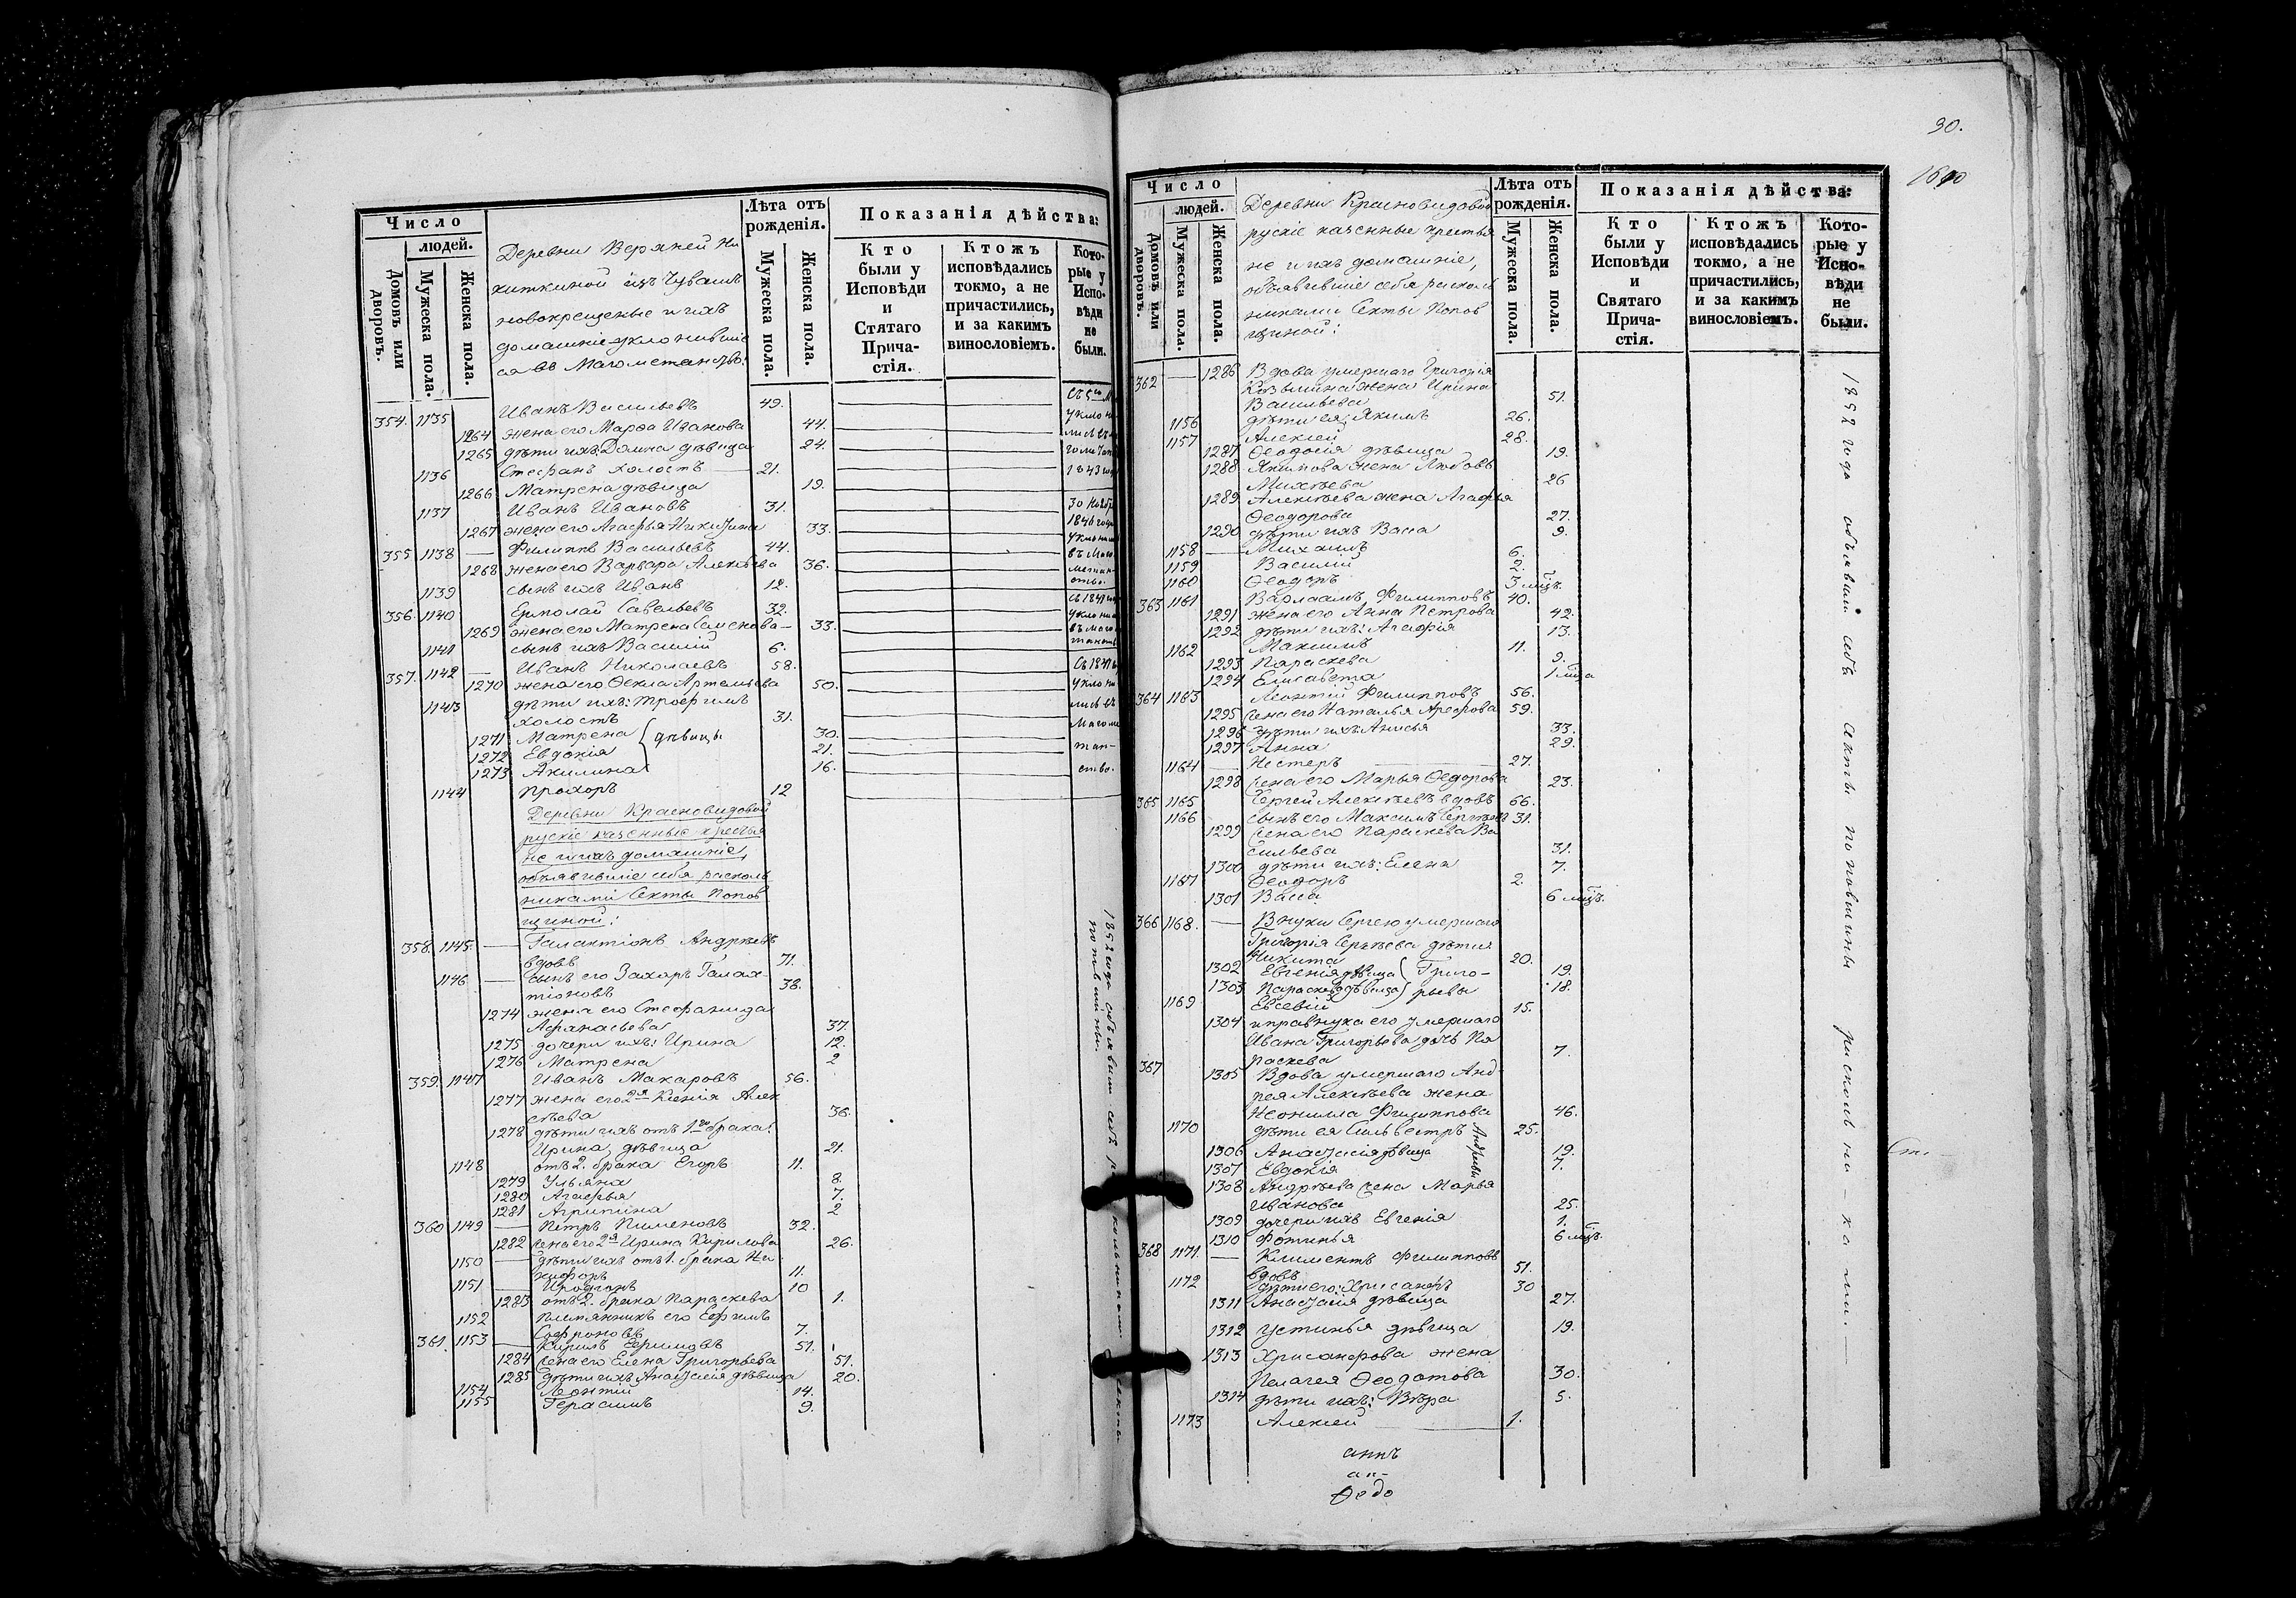 Число
людей.
Домовъ или дворовъ.
Мужеска пола.
Женска пола.
Деревни Верхней Ни
киткиной изъ Чувашъ
новокрещеные и ихъ
домашніе уклонившіе
ся въ Магометанство:
Лѣта отъ рожденія.
Мужеска пола.
Женска пола.
Показанія дѣйства:
Кто были у Исповѣди и Статаго Прича-стія.
Ктожъ исповѣдались токмо, а не причастились, и за какимъ винословіемъ.
Кото-рые у Испо-вѣди не были.
354. 1135 Иванъ Васильевъ 49.
1264 жена его Марѳа Иванова 44.
1265 дѣти ихъ: Домна дѣвица 24.
1136 Стефанъ холостъ 21.
1266 Матрена дѣвица 19.
1137 Иванъ Ивановъ 31.
1267 жена его Агафья Никитина 33.
355. 1138 — Филиппъ Васильевъ 44.
1268 жена его Варвара Алексѣева 36.
1139 сынъ ихъ Иванъ 12.
356. 1140 Ермолай Савельевъ 32.
1269 жена его Матрена Семенова 33.
1141 сынъ ихъ Василій 6.
357. 1142 — Иванъ Николаевъ 58.
1270 жена его Ѳекла Артемьева 50.
1143 дѣти ихъ: Трофимъ
холостъ 31.
1271 Матрена } дѣвицы 30.
1272 Евдокія 21.
1273 Акилина 16.
1144 Прохоръ 12
30 Нояб
1846 года
Уклони
въ Маго
метан-
ство.
Съ 1847
Уклони
лись въ
Магоме
тан-
ство.
Деревни Красновидовой
рускіе казенные крестья
не и ихъ домашніе,
объявившіе себя расколь
никами Секты Попов
щиной:
358. 1145. — Галактіонъ Андреевъ
вдовъ 71.
1146 — сынъ его Захаръ Галак-
тіоновъ 38.
1274 жена его Стефанида
Афанасьева 37.
1275 дочери ихъ: Ирина 12.
1276 Матрена 2
359. 1147 Иванъ Макаровъ 56.
1277 жена его 2я Ксенія Алек
сѣева 36.
1278 дѣти ихъ отъ 1го брака:
Ирина, дѣвица 21.
1148 отъ 2. брака Егоръ 11.
1279 Ульяна 8.
1280 Агафья 7.
1281 Агрипина 2
360 1149 — Петръ Пименовъ 32.
1282 жена его 2я Ирина Кирилова 26.
1150 — дѣти ихъ отъ 1. брака Ни
кифоръ 11.
1151 — Иродіонъ 10
1283 отъ 2. брака Параскева 1.
1152 племянникъ его Ефимъ
Софроновъ 7.
361. 1153 — Кирилъ Ефимовъ 51.
1284 жена его Елена Григорьева 51.
1285 дѣти ихъ: Анастасія дѣвица 20.
1154 Леонтій 14.
1155 Герасимъ 9.
1852 года объявили себя раскольниками секты
поповщины.
30.
1690
Число
людей.
Домовъ или дворовъ.
Мужеска пола.
Женска пола.
Деревни Красновидовой
рускіе казенные крестья
не и ихъ домашніе,
объявившіе себя расколь
никами Секты Попов
щиной:
Лѣта отъ рожденія.
Мужеска пола.
Женска пола.
Показанія дѣйства:
Кто были у Исповѣди и Святаго Прича-стія.
Ктожъ исповѣдались токмо, а не причастились, и за какимъ винословіемъ.
Кото-рые у Испо-вѣди не были.
362 — 1286 Вдова умершаго Григорія
Козьмина жена Ирина
Васильева 51.
1156 дѣти ея: Якимъ 26.
1157 Алексей 28.
1287 Ѳеодосія дѣвица 19.
1288 Якимова жена Любовь
Михеева 26
1289 Алексѣева жена Агафья
Ѳеодорова 27.
1290 дѣти ихъ Васса 9.
1158 Михаилъ 6.
1159 Василій 2.
1160 Ѳеодоръ 3 мѣц.
363 1161 Варлаамъ Филипповъ 40.
1291 жена его Анна Петрова 42.
1292 дѣти ихъ: Агафія 13.
1162 Максимъ 11.
1293 Параскева 9.
1294 Елисавета
364 1163 Леонтій Филипповъ 56.
1295 жена его Наталья Арефова 59.
1296 дѣти ихъ: Анисья 33.
1297 Анна 29.
1164 — Нестеръ 27.
1298 жена его Марья Ѳедорова 23.
365 1165 Сергей Алексѣевъ вдовъ 66.
1166 сынъ его Максимъ Сергѣевъ 31.
1299 жена его Параскева Ва
сильева 31.
1300 дѣти ихъ: Елена 7.
1167 Ѳеодоръ 2.
1301 Васса 6 мѣц.
366 1168. — Внуки Сергею умершаго
Григорія Сергѣева дѣти
Никита 20.
1302 Евгенія дѣвица } Григо- 19.
1303 Параскева дѣвица } рьевы 18.
1169 Евсевій 15.
1304 и правнука его умершаго
Ивана Григорьева дочь Па
раскева 7.
367 1305 Вдова умершаго Анд
рея Алексѣева жена
Неонилла Филиппова 46.
1170 дѣти ея Сильвестръ 25.
Андреевы
1306 Анастасія дѣвица 19.
1307 Евдокія 7.
1308 Андрѣева жена Марья
Иванова 25.
1309 дочери ихъ Евгенія 1.
1310 Фотинья 6 мѣц.
368 1171. — Климентъ Филипповъ
вдовъ 51.
1172 дѣти его: Хрисанфъ 30
1311 Анастасія дѣвица 27.
1312 Устинья дѣвица 19.
1313 Хрисанфова жена
Пелагея Ѳеодотова 30.
1314 дѣти ихъ: Вѣра 5.
1173 Алексей 1.
1852 года объявили себя секты поповщины раскольни-ками.
Ѳедо